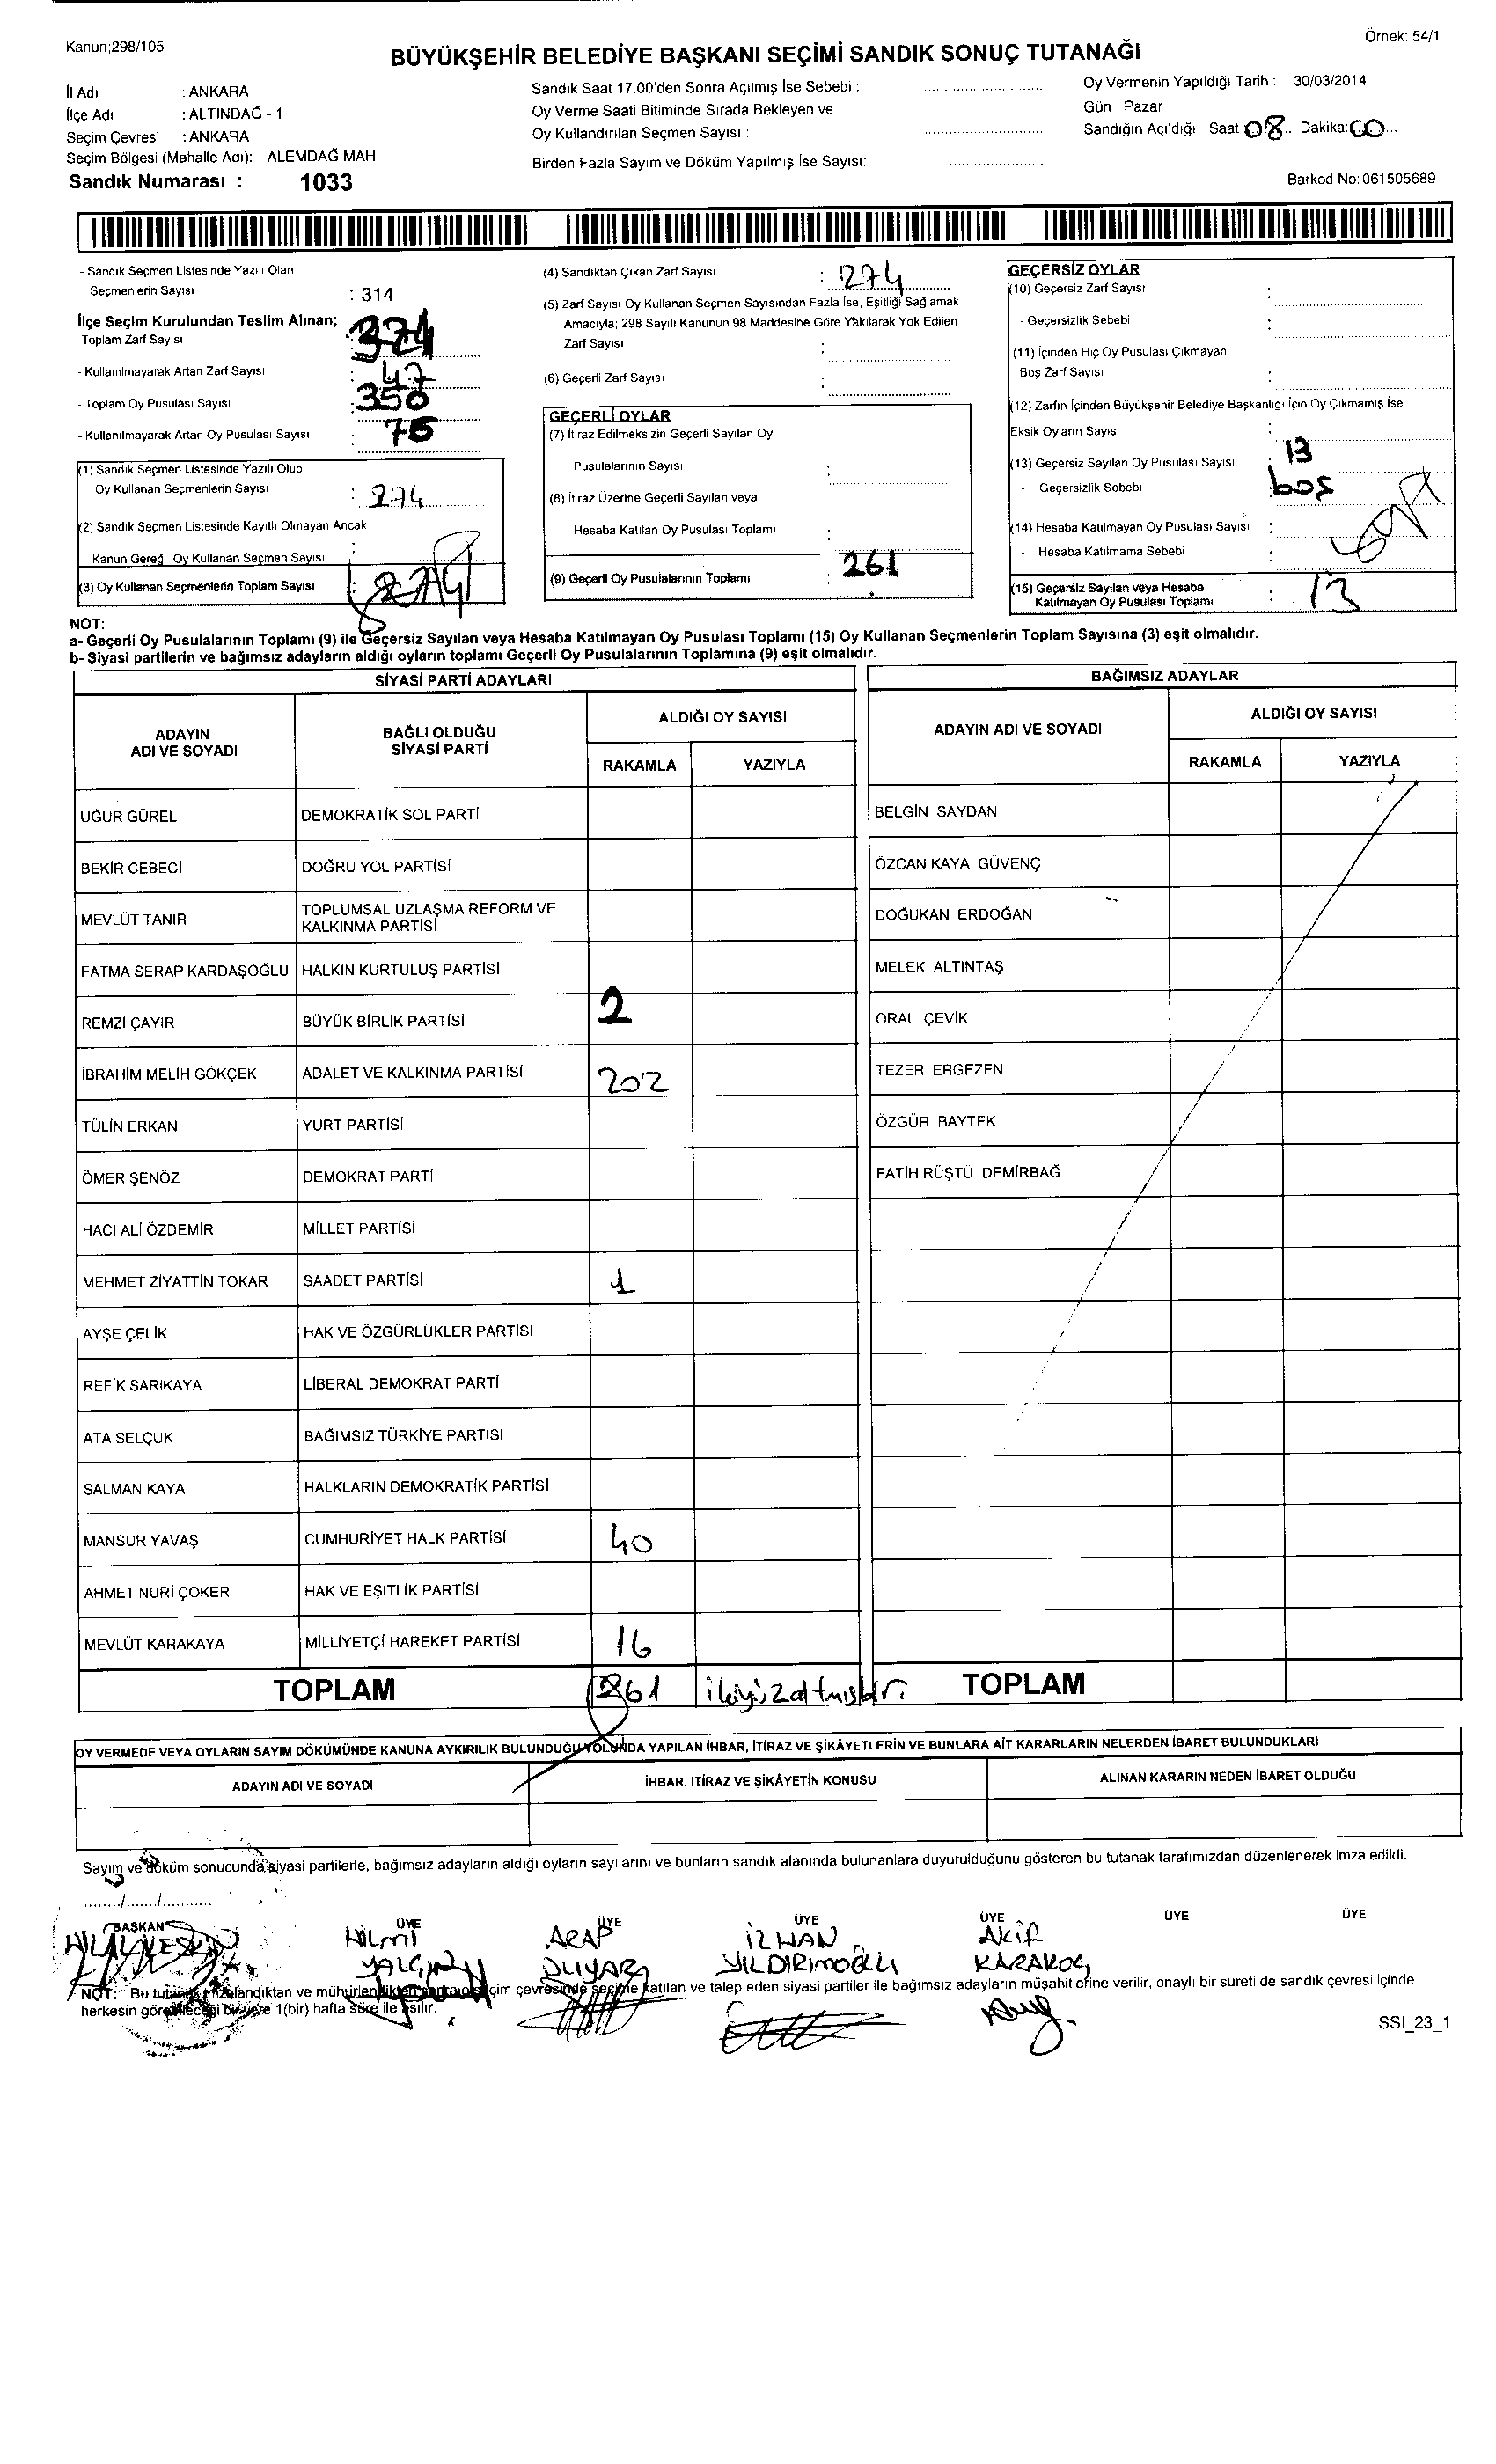 Kanun;298/105
Örnek: 54/1
BÜYÜKŞEHİR BELEDİYE BAŞKANI SEÇİMİ SANDIK SONUÇ TUTANAĞI
İl Adı : ANKARA
İlçe Adı : ALTINDAĞ - 1
Seçim Çevresi : ANKARA
Seçim Bölgesi (Mahalle Adı): ALEMDAĞ MAH.
Sandık Numarası : 1033
Sandık Saat 17.00'den Sonra Açılmış İse Sebebi :
Oy Verme Saati Bitiminde Sırada Bekleyen ve
Oy Kullandırılan Seçmen Sayısı :
Birden Fazla Sayım ve Döküm Yapılmış İse Sayısı:
Oy Vermenin Yapıldığı Tarih : 30/03/2014
Gün : Pazar
Sandığın Açıldığı Saat 08 Dakika: 00
Barkod No:061505689
- Sandık Seçmen Listesinde Yazılı Olan
Seçmenlerin Sayısı : 314
İlçe Seçim Kurulundan Teslim Alınan;
-Toplam Zarf Sayısı :
- Kullanılmayarak Artan Zarf Sayısı : 47
- Toplam Oy Pusulası Sayısı : 350
- Kullanılmayarak Artan Oy Pusulası Sayısı :
(1) Sandık Seçmen Listesinde Yazılı Olup
Oy Kullanan Seçmenlerin Sayısı : 274
(2) Sandık Seçmen Listesinde Kayıtlı Olmayan Ancak
Kanun Gereği Oy Kullanan Seçmen Sayısı :
(3) Oy Kullanan Seçmenlerin Toplam Sayısı : 274
(4) Sandıktan Çıkan Zarf Sayısı : 274
(5) Zarf Sayısı Oy Kullanan Seçmen Sayısından Fazla İse, Eşitliği Sağlamak
Amacıyla; 298 Sayılı Kanunun 98.Maddesine Göre Yakılarak Yok Edilen
Zarf Sayısı :
(6) Geçerli Zarf Sayısı :
GEÇERLİ OYLAR
(7) İtiraz Edilmeksizin Geçerli Sayılan Oy
Pusulalarının Sayısı :
(8) İtiraz Üzerine Geçerli Sayılan veya
Hesaba Katılan Oy Pusulası Toplamı :
(9) Geçerli Oy Pusulalarının Toplamı : 261
GEÇERSİZ OYLAR
(10) Geçersiz Zarf Sayısı :
- Geçersizlik Sebebi :
(11) İçinden Hiç Oy Pusulası Çıkmayan
Boş Zarf Sayısı :
(12) Zarfın İçinden Büyükşehir Belediye Başkanlığı İçin Oy Çıkmamış İse
Eksik Oyların Sayısı :
(13) Geçersiz Sayılan Oy Pusulası Sayısı : 13
- Geçersizlik Sebebi : boş
(14) Hesaba Katılmayan Oy Pusulası Sayısı :
- Hesaba Katılmama Sebebi :
(15) Geçersiz Sayılan veya Hesaba
Katılmayan Oy Pusulası Toplamı : 13
NOT:
a- Geçerli Oy Pusulalarının Toplamı (9) ile Geçersiz Sayılan veya Hesaba Katılmayan Oy Pusulası Toplamı (15) Oy Kullanan Seçmenlerin Toplam Sayısına (3) eşit olmalıdır.
b- Siyasi partilerin ve bağımsız adayların aldığı oyların toplamı Geçerli Oy Pusulalarının Toplamına (9) eşit olmalıdır.
SİYASİ PARTİ ADAYLARI
ADAYIN ADI VE SOYADI
BAĞLI OLDUĞU SİYASİ PARTİ
ALDIĞI OY SAYISI
RAKAMLA YAZIYLA
UĞUR GÜREL DEMOKRATİK SOL PARTİ
BEKİR CEBECİ DOĞRU YOL PARTİSİ
MEVLÜT TANIR TOPLUMSAL UZLAŞMA REFORM VE KALKINMA PARTİSİ
FATMA SERAP KARDAŞOĞLU HALKIN KURTULUŞ PARTİSİ
REMZİ ÇAYIR BÜYÜK BİRLİK PARTİSİ 2
İBRAHİM MELİH GÖKÇEK ADALET VE KALKINMA PARTİSİ 202
TÜLİN ERKAN YURT PARTİSİ
ÖMER ŞENÖZ DEMOKRAT PARTİ
HACI ALİ ÖZDEMİR MİLLET PARTİSİ
MEHMET ZİYATTİN TOKAR SAADET PARTİSİ 1
AYŞE ÇELİK HAK VE ÖZGÜRLÜKLER PARTİSİ
REFİK SARIKAYA LİBERAL DEMOKRAT PARTİ
ATA SELÇUK BAĞIMSIZ TÜRKİYE PARTİSİ
SALMAN KAYA HALKLARIN DEMOKRATİK PARTİSİ
MANSUR YAVAŞ CUMHURİYET HALK PARTİSİ 40
AHMET NURİ ÇOKER HAK VE EŞİTLİK PARTİSİ
MEVLÜT KARAKAYA MİLLİYETÇİ HAREKET PARTİSİ 16
TOPLAM 261 ikiyüzaltmışbir
BAĞIMSIZ ADAYLAR
ADAYIN ADI VE SOYADI
ALDIĞI OY SAYISI
RAKAMLA YAZIYLA
BELGİN SAYDAN
ÖZCAN KAYA GÜVENÇ
DOĞUKAN ERDOĞAN
MELEK ALTINTAŞ
ORAL ÇEVİK
TEZER ERGEZEN
ÖZGÜR BAYTEK
FATİH RÜŞTÜ DEMİRBAĞ
TOPLAM
OY VERMEDE VEYA OYLARIN SAYIM DÖKÜMÜNDE KANUNA AYKIRILIK BULUNDUĞU YOLUNDA YAPILAN İHBAR, İTİRAZ VE ŞİKÂYETLERİN VE BUNLARA AİT KARARLARIN NELERDEN İBARET BULUNDUKLARI
ADAYIN ADI VE SOYADI
İHBAR, İTİRAZ VE ŞİKÂYETİN KONUSU
ALINAN KARARIN NEDEN İBARET OLDUĞU
Sayım ve döküm sonucunda siyasi partilerle, bağımsız adayların aldığı oyların sayılarını ve bunların sandık alanında bulunanlara duyurulduğunu gösteren bu tutanak tarafımızdan düzenlenerek imza edildi.
....../....../............
BAŞKAN ÜYE ÜYE ÜYE ÜYE ÜYE ÜYE
HİLMİ YALÇIN
ARAP DUYAR
İLHAN YILDIRIMOĞLU
AKİF KARAKOÇ
NOT: Bu tutanak imzalandıktan ve mühürlendikten sonra o seçim çevresinde seçime katılan ve talep eden siyasi partiler ile bağımsız adayların müşahitlerine verilir, onaylı bir sureti de sandık çevresi içinde
herkesin görebileceği bir yere 1(bir) hafta süre ile asılır.
SSI_23_1